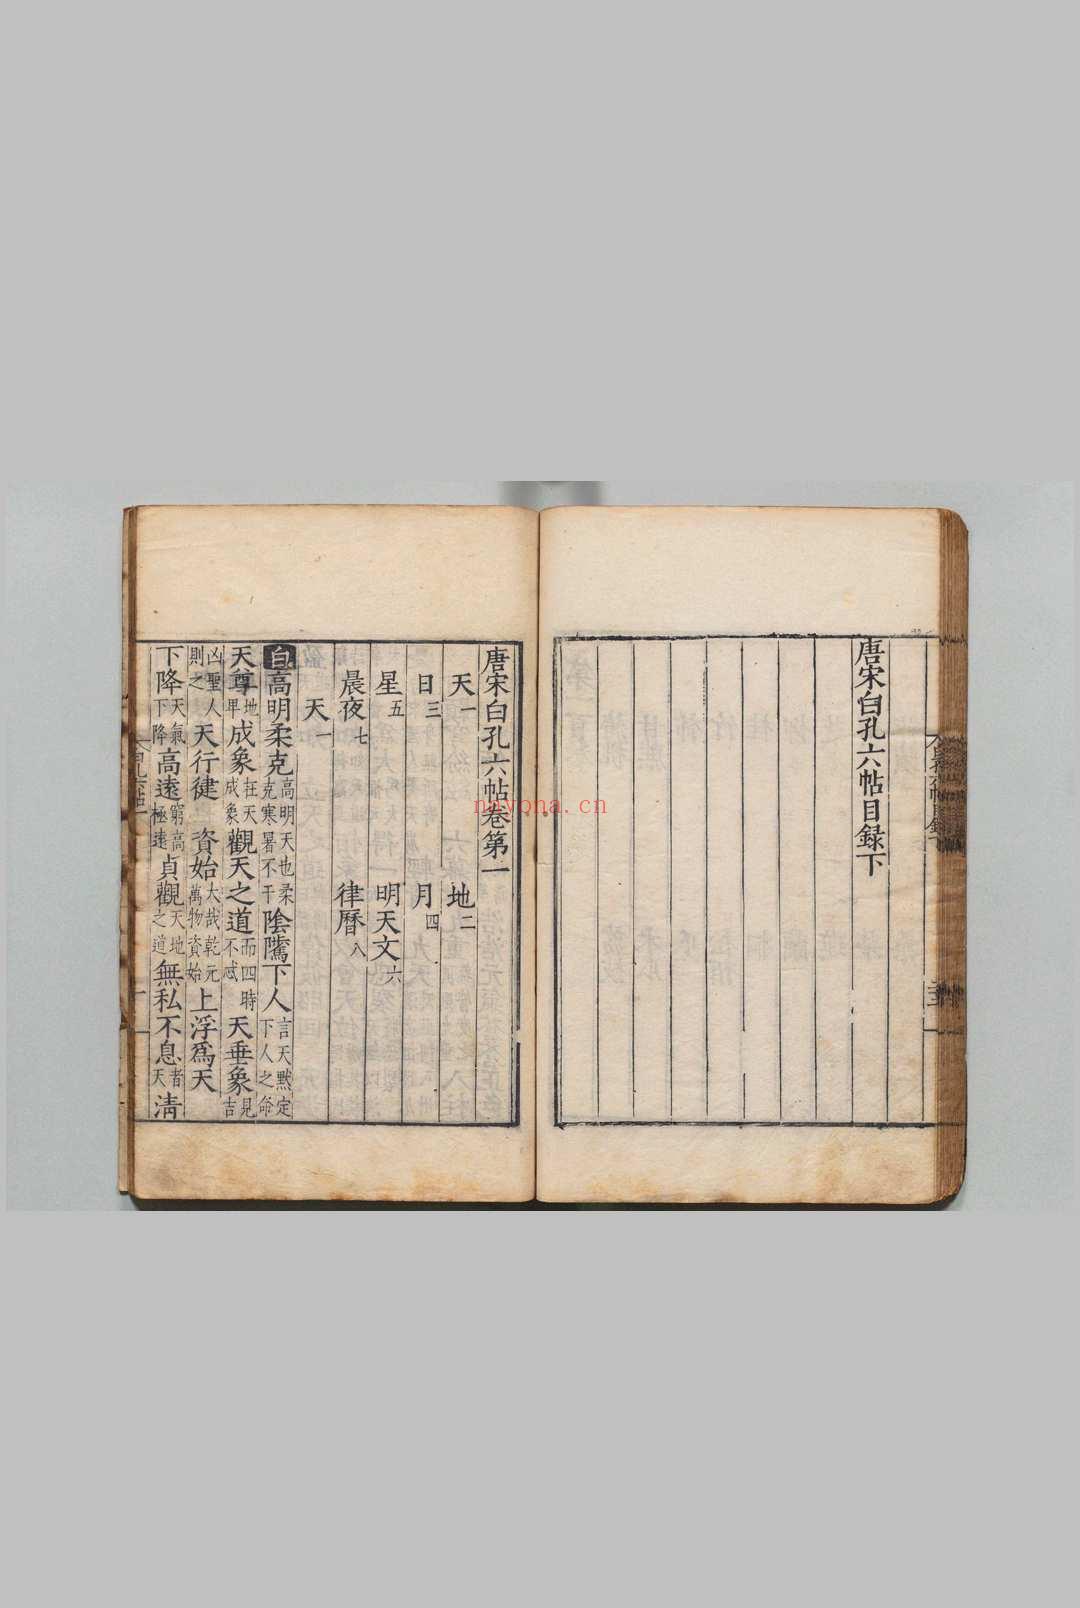 唐宋白孔六帖目録下
唐宋白孔六帖卷第一
天一 地二
日三 月四
星五 明天文六
晨夜七 律曆八
天一
白高明柔克高明天也柔克寒暑不干陰騭下人言天黙定下人之命
天尊地卑成象在天成象觀天之道而四時不忒天垂象見吉
凶聖人則之天行健 資始大哉乾元萬物資始上浮爲天
下降天氣下降高遠窮高極遠貞觀天地之道無私不息者天清
nayona.cn